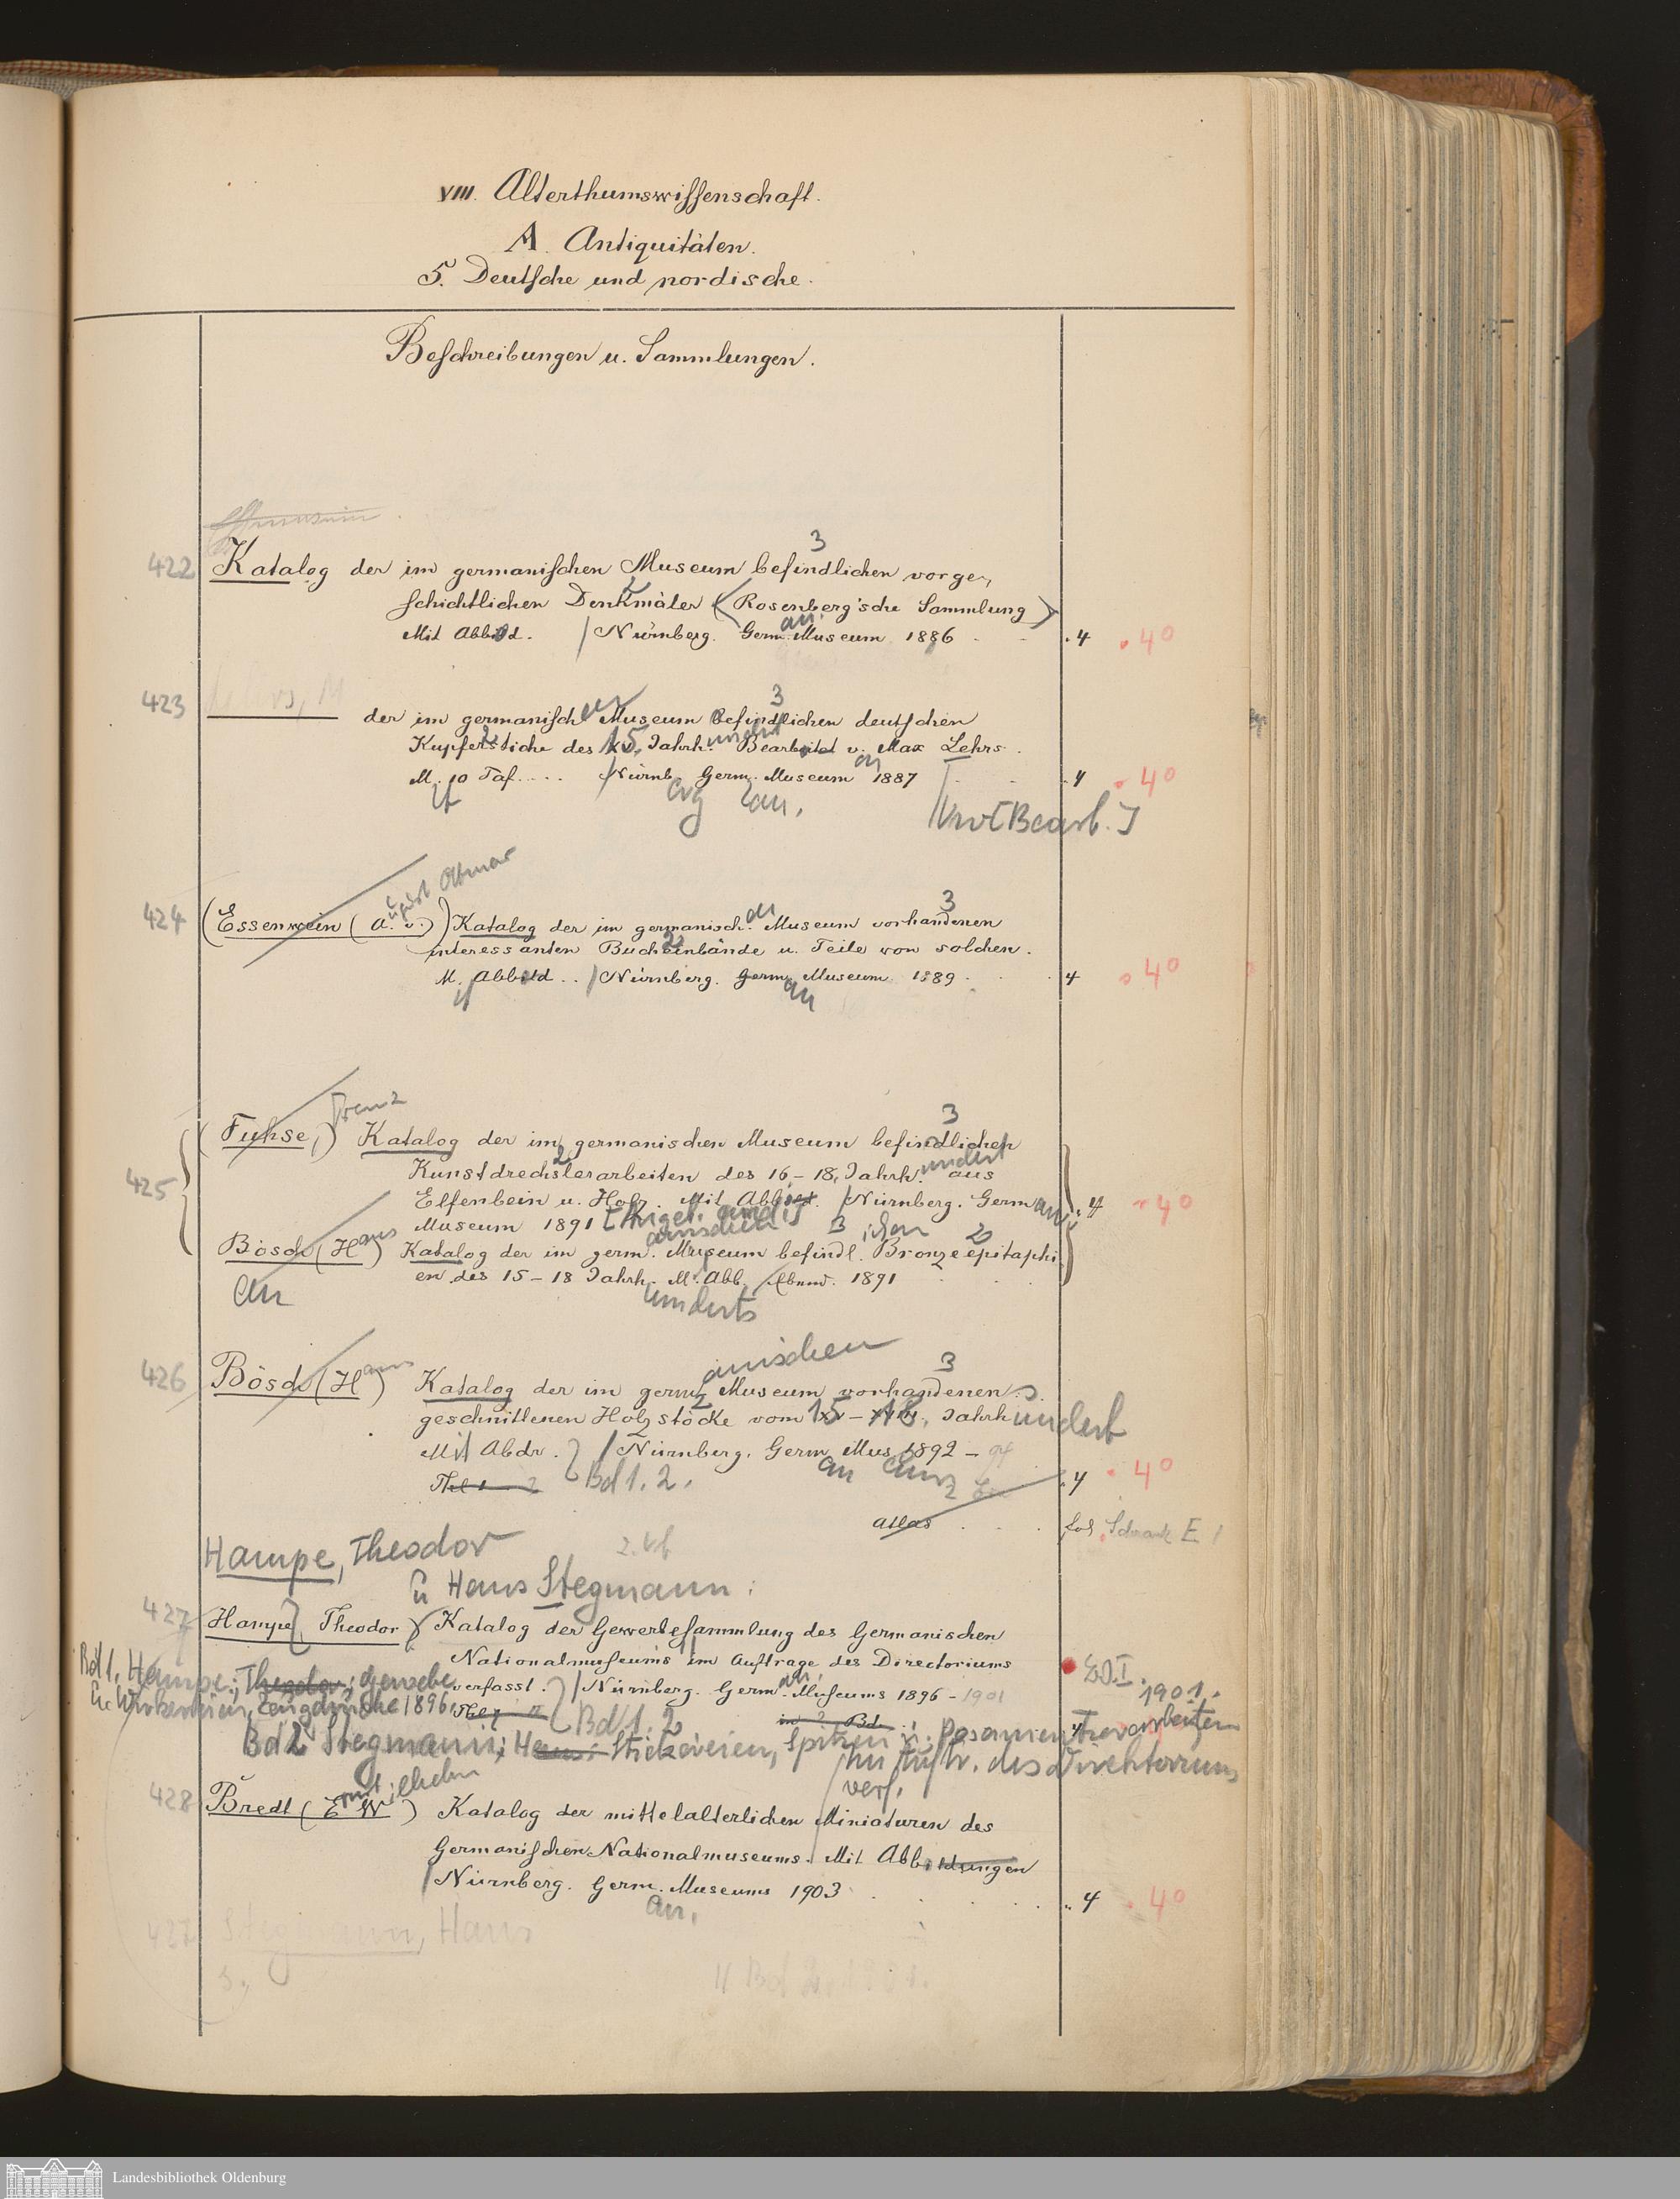 VIII. Alterthumswissenschaft.
A. Antiquitäten.
5. Deutsche und nordische.
Beschreibungen u. Sammlungen.
3
422 Katalog der im germanischen Museum befindlichen vorge-
schichtlichen Denkmäler (Rosenberg'sche Sammlung)
2
an.
Mit Abbild. / Nürnberg. Germ. Museum 1886 . . 4 40
423 Lehrs, M
3
der im germanisch en Museum befindlichen deutschen
Kupferstiche des 15. Jahrhundert Bearbeitet v. Max Lehrs.
M. 10 Taf. . . . / Nürnb. Germ. Museum 1887 . . 4 40
erg an.
[Bearb.]
August Ottmar
3
424 (Essenwein (A. v.)) Katalog der im germanisch. en Museum vorhandenen
interessanten Bucheinbände u. Teile von solchen.
M. Abbild. . / Nürnberg. Germ. Museum 1889 . . 4 40
an
Franz
3
425 (Fuhse,) Katalog der im germanischen Museum befindlichen
Kunstdrechslerarbeiten des 16.-18. Jahrhundert aus
Elfenbein u. Holz. Mit Abbild. / Nürnberg. Germ an. 4 40
Museum 1891
anischen 3 ichen 2
Bösch (Hans) Katalog der im germ. Museum befindl. Bronzeepitaphi-
en des 15-18 Jahrh. M. Abb. Ebend. 1891
an
underts
anischen 3
426 Bösch (Hans) Katalog der im germ. Museum vorhandenen
geschnittenen Holzstöcke vom 15 - 18. Jahrhundert
Mit Abdr. / Nürnberg. Germ. Mus. 1892 - 94
Bd 1. 2. an
4 40
Atlas . . . fol. Schrank E 1
Hampe, Theodor
u Hans Stegmann:
427 Hampe, Theodor Katalog der Gewerbesammlung des Germanischen
Nationalmuseums im Auftrage des Directoriums
verfasst. / Nürnberg. Germ. an. Museums 1896 - 1901
Bd 1. Hampe: Theodor: Gewebe
u. Wirkereien, Zeugdrucke 1896.
Bd 1. 2
in 2 Bd.
1901.
Bd 2 Stegmann: Hans: Stickereien, Spitzen u. Posamentierarbeiten
Im Auftr. des Direktoriums
verf.
rnst ilhelm
428 Bredt (E W) Katalog der mittelalterlichen Miniaturen des
Germanischen Nationalmuseums. Mit Abbildungen
/ Nürnberg. Germ. Museums 1903 . . 4 40
an.
427 Stegmann, Hans
s.
Bd 2, 1901.
Landesbibliothek Oldenburg